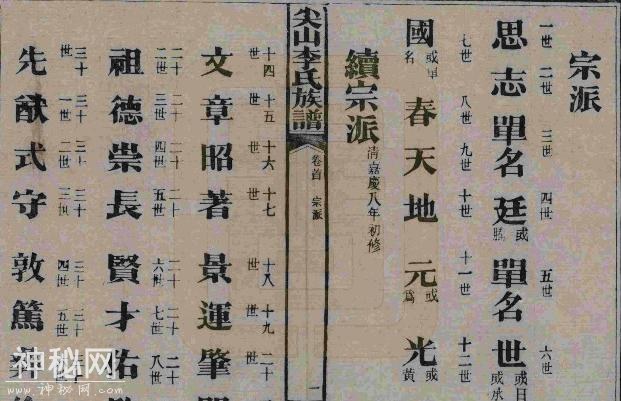 宗派
一世 二世 三世 四世 五世 六世
思志單名廷或單名世或日或承
七世 八世 九世 十世 十一世 十二世
國或單名春天地元或為光或黃
續宗派 清嘉慶八年初修
尖山李氏族譜 卷首 宗派 一
十四世 十五世 十六世 十七世 十八世 十九世 二十
文章昭著景運肇
二十二世 二十三世 二十四世 二十五世 二十六世 二十七世 二十八世
祖德崇長賢才佑
三十世 三十一世 三十二世 三十三世 三十四世 三十五世 三十
先猷式守敦篤
神秘网
www.神秘网.com